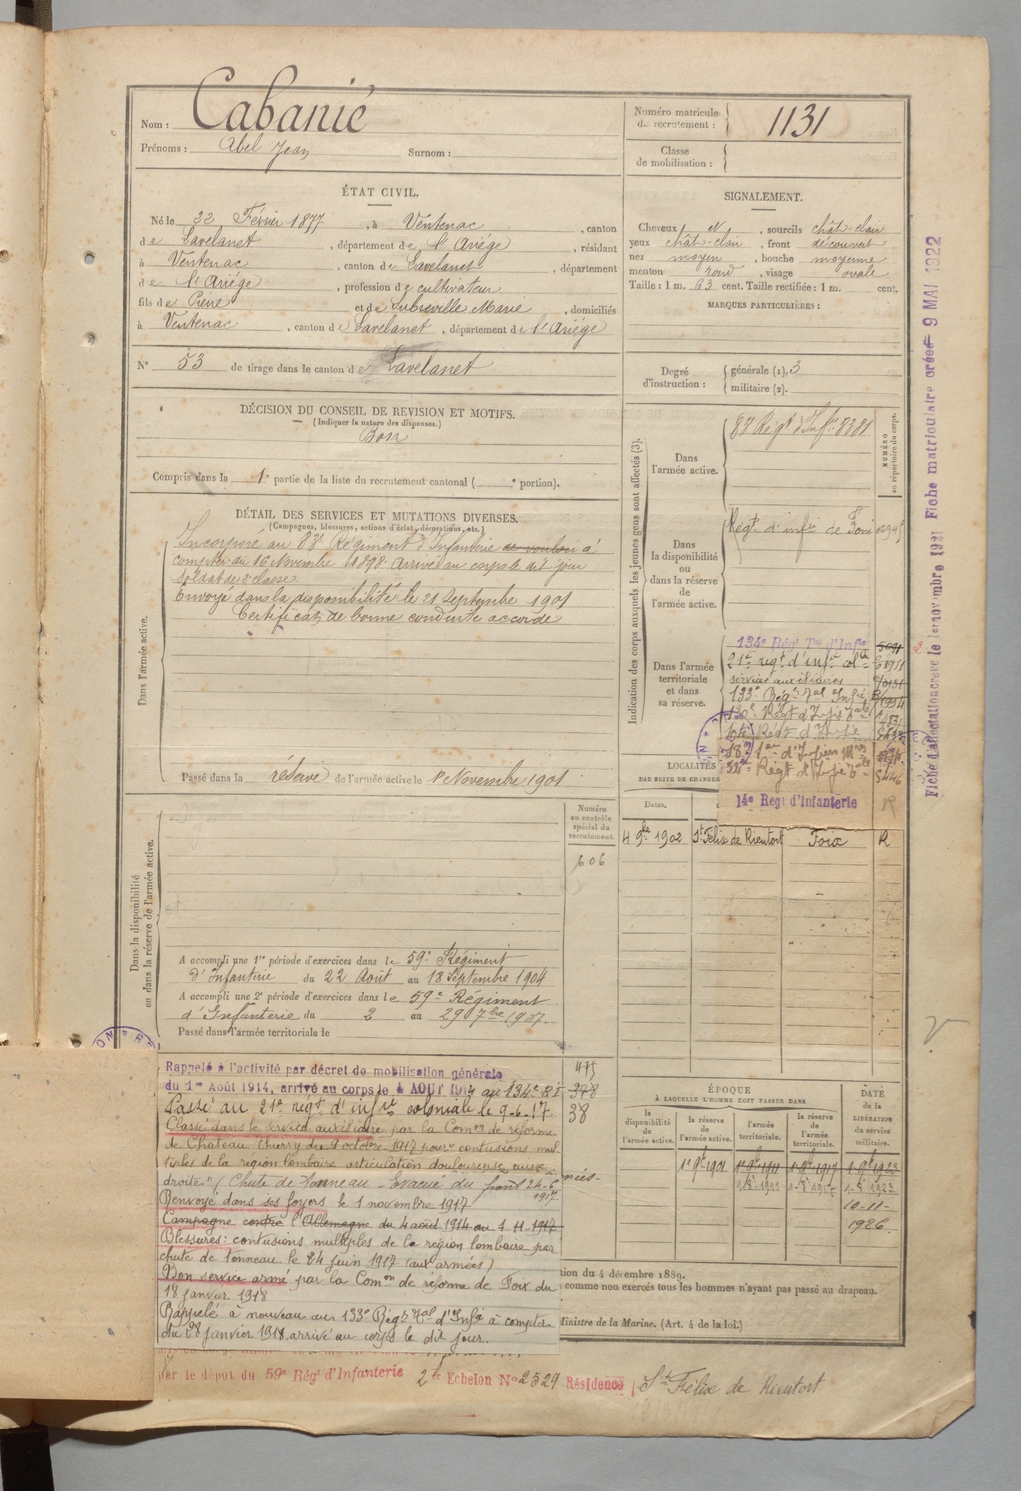 Nom : Cabanié
Prénoms : Abel Jean Surnom :
Numéro matricule du recrutement : 1131
Classe de mobilisation :
ÉTAT CIVIL.
Né le 22 Février 1877, à Ventenac, canton
de Lavelanet, département de l'Ariège, résidant
à Ventenac, canton de Lavelanet, département
de l'Ariège, profession de cultivateur
fils de Pierre et de Subreville Marie, domiciliés
à Ventenac, canton de Lavelanet, département de l'Ariège
N° 53 de tirage dans le canton de Lavelanet
SIGNALEMENT.
Cheveux N, sourcils chât-clair
yeux chât-clair, front découvert
nez moyen, bouche moyenne
menton rond, visage ovale
Taille : 1 m. 63 cent. Taille rectifiée : 1 m. cent.
MARQUES PARTICULIÈRES :
Degré d'instruction : générale (1). 3
militaire (2).
DÉCISION DU CONSEIL DE REVISION ET MOTIFS.
(Indiquer la nature des dispenses.)
Bon
Compris dans la 1e partie de la liste du recrutement cantonal ( e portion).
DÉTAIL DES SERVICES ET MUTATIONS DIVERSES.
(Campagnes, blessures, actions d'éclat, décorations, etc.)
Dans l'armée active.
Incorporé au 83e Régiment d'Infanterie à
compter du 16 Novembre 1898 arrivé au corps le dit jour
Soldat de 2e classe
Envoyé dans la disponibilité le 21 Septembre 1901
Certificat de bonne conduite accordé
Passé dans la réserve de l'armée active le 1er Novembre 1901
Indication des corps auxquels les jeunes gens sont affectés (3).
NUMÉRO au répertoire du corps.
Dans l'armée active.
83 Régt d'Infie 8381
Dans la disponibilité ou dans la réserve de l'armée active.
Régt d'infie de Foix
Dans l'armée territoriale et dans sa réserve.
134e Rég Tal d'Infie
21e régt d'infie colle
service auxiliaire
133e Régt Tal Infie
130e Régt d'Infie Tale
14e Régt d'Infanterie
LOCALITÉS
PAR SUITE DE CHANGE
Dates.
4 9bre 1902 St Félix de Rieutort Foix R
Fiche d'affectation créée le 1er novembre 1921 Fiche matriculaire créée 9 MAI 1922
Dans la disponibilité ou dans la réserve de l'armée active.
Numéro au contrôle spécial du recrutement.
606
A accompli une 1re période d'exercices dans le 59e Régiment
d'Infanterie du 22 Août au 18 Septembre 1904
A accompli une 2e période d'exercices dans le 59e Régiment
d'Infanterie du 2 au 29 7bre 1907
Passé dans l'armée territoriale le
475
378
38
Rappelé à l'activité par décret de mobilisation générale
du 1er Août 1914, arrivé au corps le 4 AOUT 1914 au 134e RI
Passé au 21e régt d'infie coloniale le 9-6-17
Classé dans le service auxiliaire par la Comon de réforme
de Chateau Thierry du 1 octobre 1917 pour contusions mul
tiples de la région lombaire articulation douloureuse
droite / Chute de tonneau - évacué du front 24-6
1917
Renvoyé dans ses foyers le 1 novembre 1917
Campagne contre l'Allemagne du 4 août 1914 au 1-11-1917
Blessures : contusions multiples de la région lombaire par
chute de tonneau le 24 juin 1917 (aux armées)
Bon service armé par la Comon de réforme de Foix du
18 janvier 1918
Rappelé à nouveau au 133e Régt Tal d'Infie à compter
du 28 janvier 1918. arrivé au corps le dit jour.
ÉPOQUE
À LAQUELLE L'HOMME DOIT PASSER DANS
la disponibilité de l'armée active.
la réserve de l'armée active.
l'armée territoriale.
la réserve de l'armée territoriale.
DATE de la LIBÉRATION du service militaire.
1er 9bre 1901 1er 9bre 1911 1er 9bre 1917 1-9bre-1923
10-11-
1926
tion du 4 décembre 1889.
comme non exercés tous les hommes n'ayant pas passé au drapeau.
Ministre de la Marine. (Art. 4 de la loi.)
par le dépot du 59e Régt d'Infanterie 2e Echelon N° 2329 Résidence St Félix de Rieutort